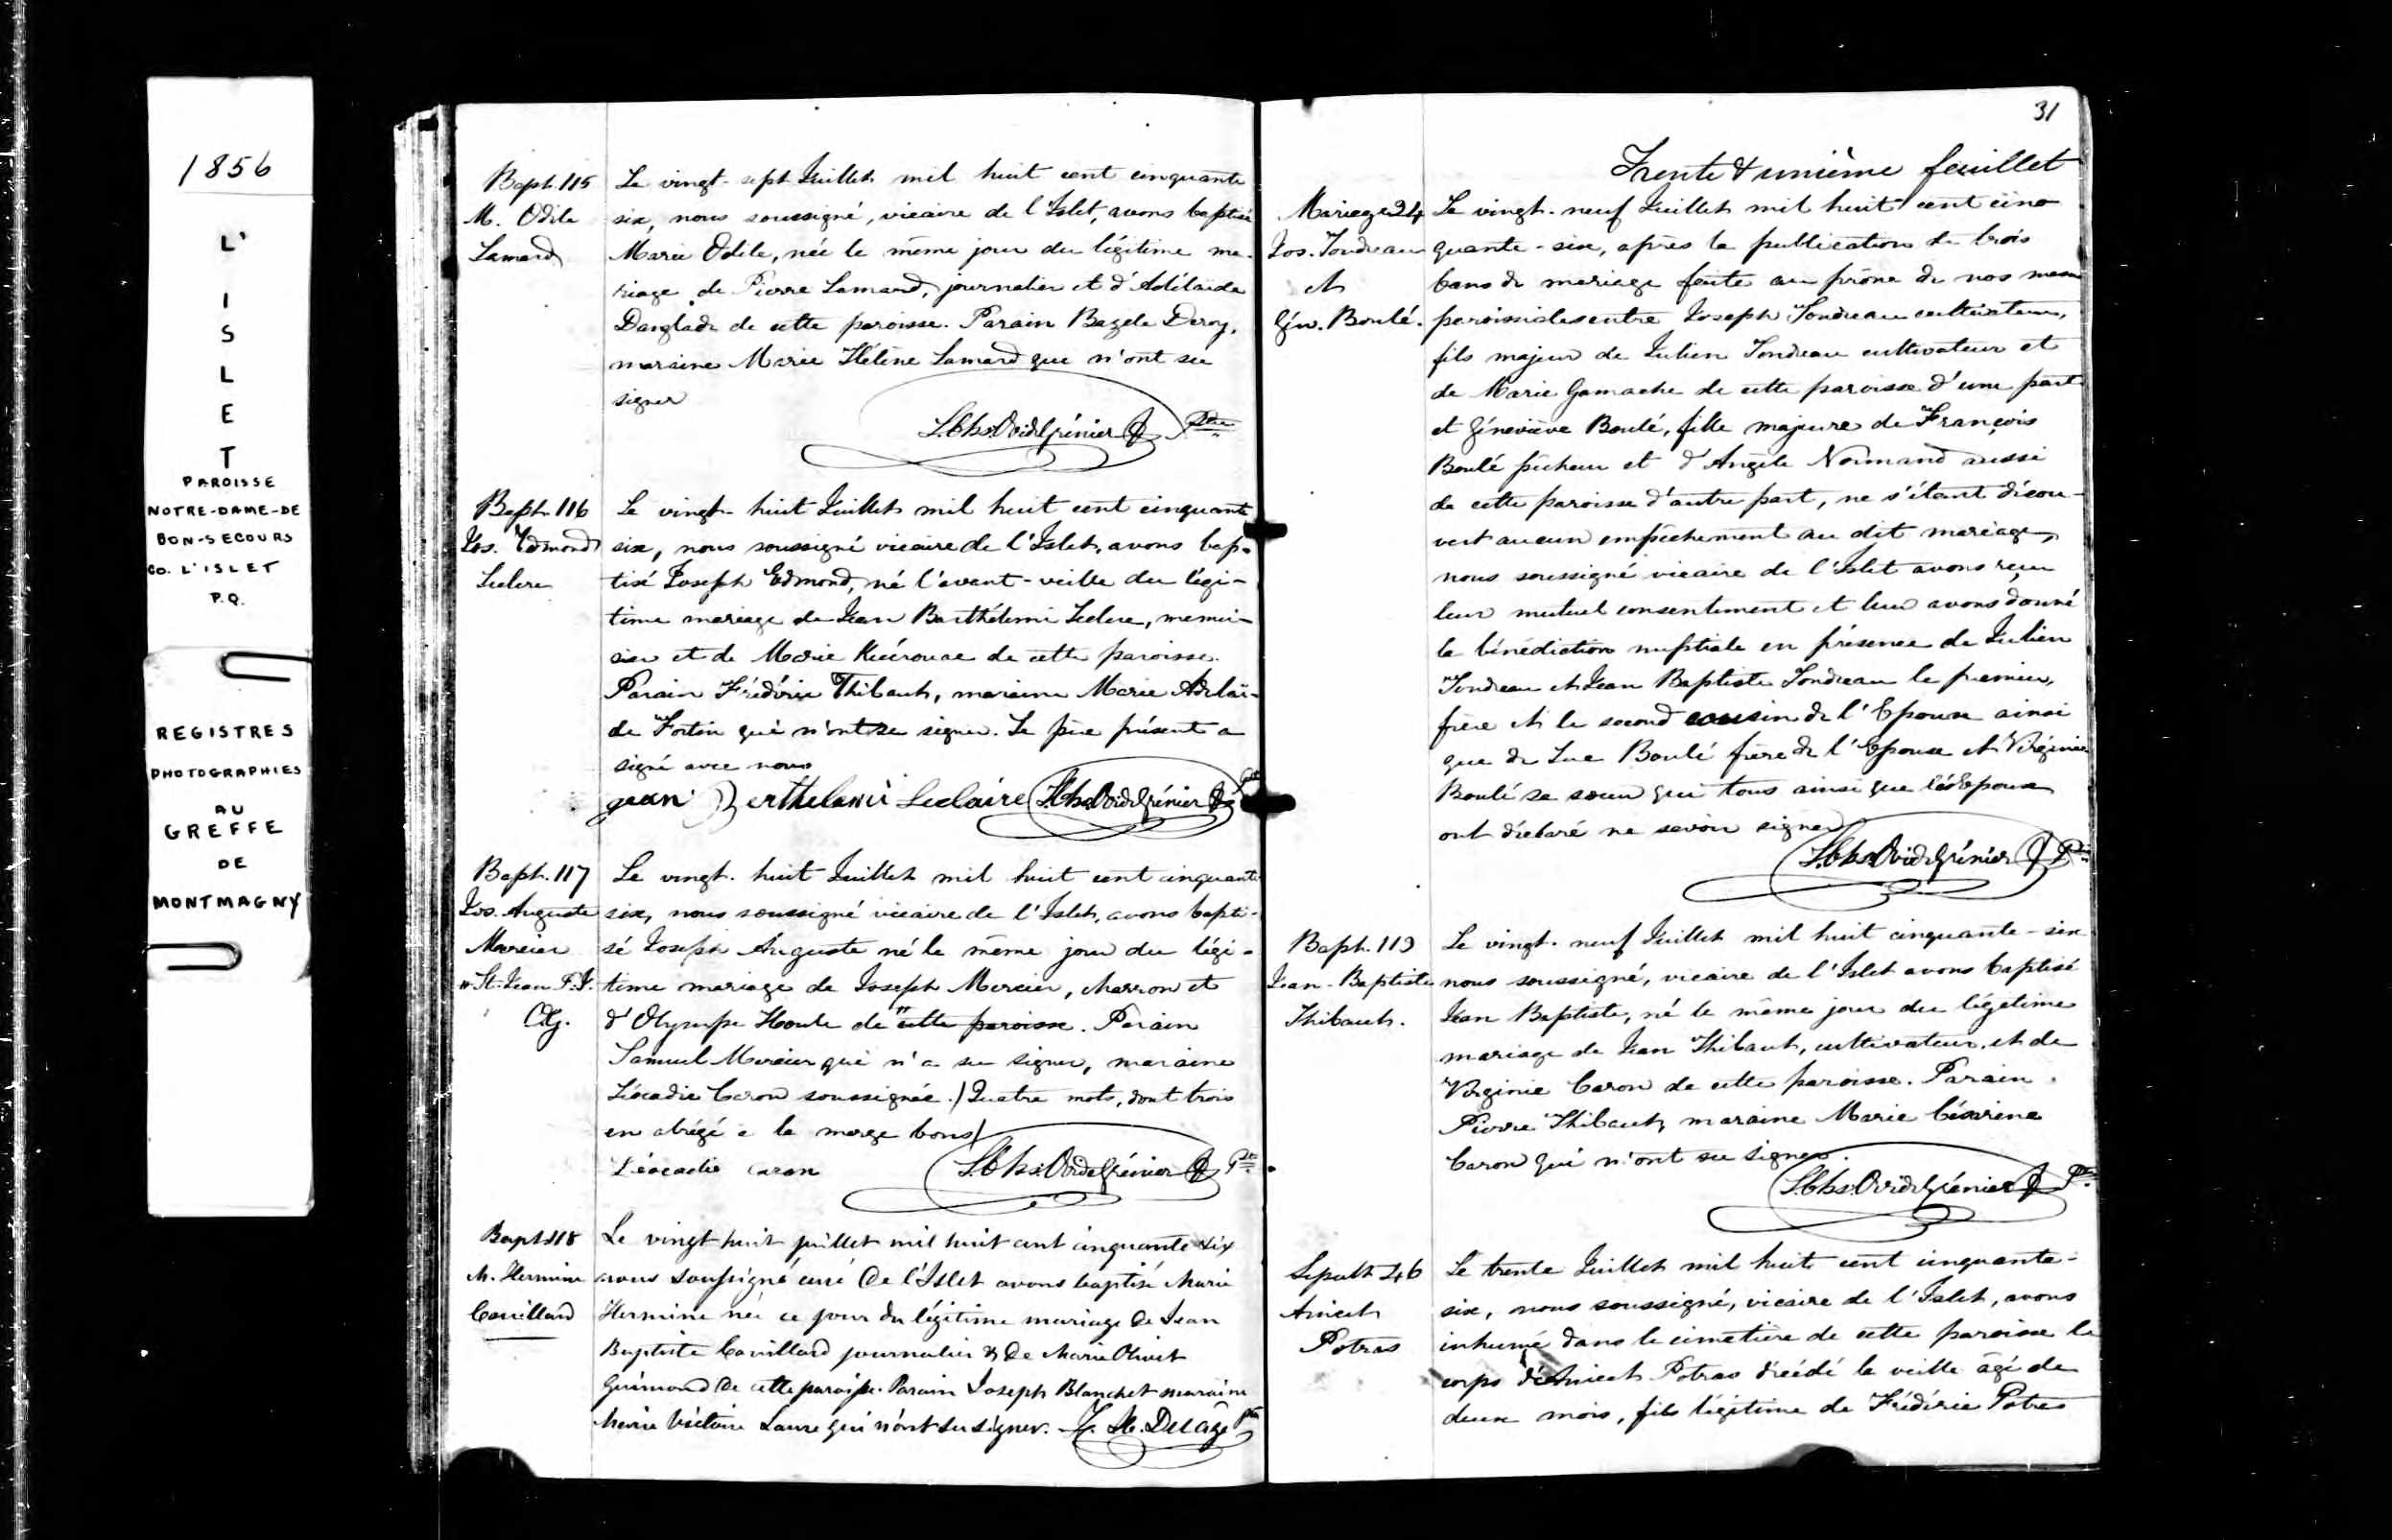 1856
L'
I
S
L
E
T
PAROISSE
NOTRE-DAME-DE
BON-SECOURS
CO. L'ISLET
P.Q.
REGISTRES
PHOTOGRAPHIES
AU
GREFFE
DE
MONTMAGNY
Bapt. 115
M. Odile
Lamard
Le vingt-sept Juillet mil huit cent cinquante
six, nous soussigné, vicaire de l'Islet, avons baptisé
Marie Odile, née le même jour du légitime ma-
riage de Pierre Lamard, journalier et d'Adélaïde
Danglade de cette paroisse. Parain Bazile Deroy,
maraine Marie Hélène Lamard qui n'ont su
signer
L. Chs. Ovide Grénier Ptre
Bapt. 116
Jos. Edmond
Leclerc
Le vingt-huit Juillet mil huit cent cinquante
six, nous soussigné vicaire de l'Islet, avons bap-
tisé Joseph Edmond, né l'avant-veille du légi-
time mariage de Jean Barthélemi Leclerc, menui-
sier et de Marie Kuérouac de cette paroisse.
Parain Frédéric Thibault, maraine Marie Adélaï-
de Fortin qui n'ont su signer. Le père présent a
signé avec nous
jean Berthelemi Leclaire L. Chs. Ovide Grénier Ptre
Bapt. 117
Jos. Auguste
Mercier
"St. Jean P.J.
Le vingt-huit Juillet mil huit cent cinquante
six, nous soussigné vicaire de l'Islet, avons bapti-
sé Joseph Auguste né le même jour du légi-
time mariage de Joseph Mercier, charron et
d'Olympe Houle de "cette paroisse. Parain
Samuel Mercier qui n'a su signer, maraine
Léocadie Caron soussignée. / Quatre mots, dont trois
en abrégé à la marge bons /
Léocadie caron L. Chs. Ovide Grénier Ptre
Bapt 118
M. Hermine
Couillard
Le vingt huit juillet mil huit cent cinquante six
nous soussigné curé de l'Islet avons baptisé Marie
Hermine née ce jour du légitime mariage de Jean
Baptiste Couillard journalier & de Marie Olivet
Guimond de cette paroisse. Parain Joseph Blanchet maraine
Marie Victoire Laure qui n'ont su signer. F. X. Delâge ptre
31
Trente & unième feuillet
Mariage 24
Jos. Tondreau
et
Gén. Boulé.
Le vingt-neuf Juillet mil huit cent cinq
quante-six, après la publication de trois
bans de mariage faite au prône de nos messes
paroissiales entre Joseph Tondreau cultivateur,
fils majeur de Julien Tondreau cultivateur et
de Marie Gamache de cette paroisse d'une part
et Géneviève Boulé, fille majeure de François
Boulé pêcheur et d'Angèle Normand aussi
de cette paroisse d'autre part, ne s'étant décou-
vert aucun empêchement au dit mariage,
nous soussigné vicaire de l'Islet avons reçu
leur mutuel consentement et leur avons donné
la bénédiction nuptiale en présence de Julien
Tondreau et Jean Baptiste Tondreau le premier,
frère et le second cousin de l'Epoux ainsi
que de Luc Boulé frère de l'Epouse et Virginie
Boulé sa sœur qui tous ainsi que les Epoux
ont déclaré ne savoir signer
L. Chs. Ovide Grénier Ptre
Bapt. 119
Jean-Baptiste
Thibault.
Le vingt-neuf Juillet mil huit cinquante-six
nous soussigné, vicaire de l'Islet avons baptisé
Jean Baptiste, né le même jour du légitime
mariage de Jean Thibault, cultivateur, et de
Virginie Caron de cette paroisse. Parain
Pierre Thibault, maraine Marie Césarine
Caron qui n'ont su signer.
L. Chs. Ovide Grénier Ptre
Sepult 46
Anicet
Potras
Le trente Juillet mil huit cent cinquante-
six, nous soussigné, vicaire de l'Islet, avons
inhumé dans le cimetière de cette paroisse le
corps d'Anicet Potras décédé la veille âgé de
deux mois, fils légitime de Frédéric Potras